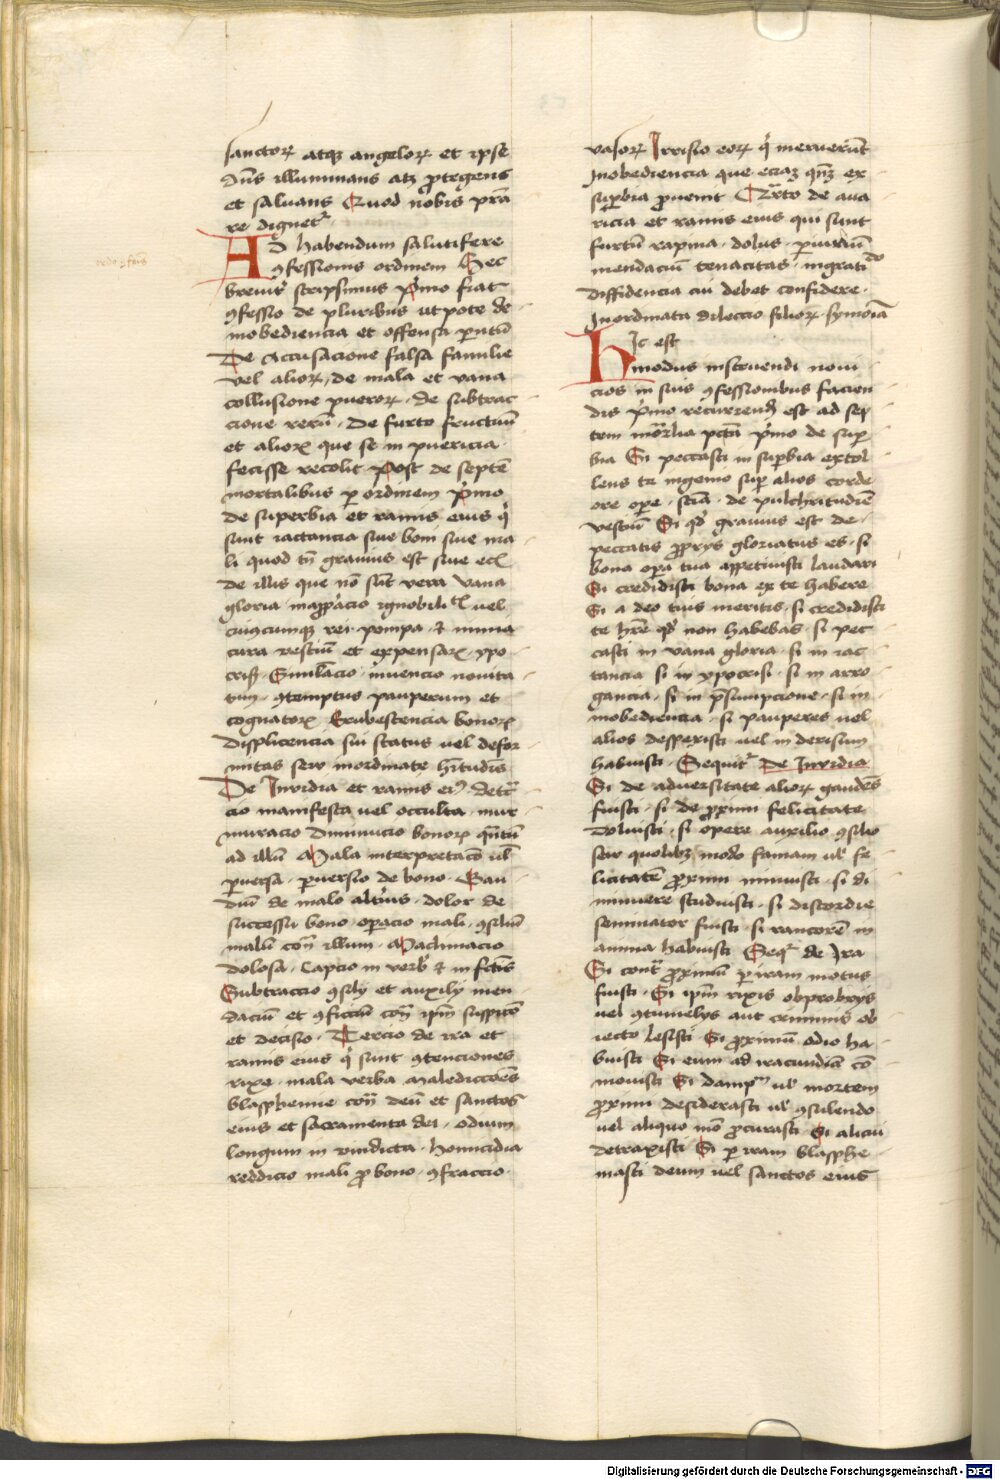 sanctoꝝ atqꝫ angeloꝝ et ipse
dn̄s illuminans atqꝫ ꝓtegens
et saluans Quod nobis p̄sta
re dignetᷣ
Ad habendum salutifere
ꝯfessionis ordinem Hec
breuit᷑ scripsimus Pͥmo fiat
ꝯfessio de pluribus utpote de
inobediencia et offensa parentū
De Accusacione falsa familie
vel alioꝝ, de mala et vana
collusione pueroꝝ, de subtrac
cione rerū, De furto fructuū
et alioꝝ que se in puericia
fecisse recolit Post de septē
mortalibus ꝑ ordinem Pͥmo
de superbia et ramis eius qͥ
sunt iactancia siue boni siue ma
li quod tn̄ grauius est siue eciā
de illis que nō sūt vera Vana
gloria vel
cuiuscumqꝫ rei pompa ⁊ nimia
cura vestiū et expensaꝝ ypo
crisis Simulacio inuencio nouita
tum ꝯtemptus pauperum et
cognatoꝝ Erubescencia bonoꝝ
Displicencia sui status uel defor
mitas seu inordinate
De Inuidia et ramis eiꝰ detͣc
cio manifesta uel occulta mur
muracio diminucio bonoꝝ qͣntū
ad illū Mala interpretacō ul᷑
ꝑuersa ꝑuersio de bono Gau
diū de malo altͥus dolor de
successu bono oꝑacio mali ꝯsiliū
malū cont̄ illum Machinacio
dolosa Capcio in verbis ⁊ in fc̄is
Subtraccio ꝯsilij et auxilij men
daciū et ꝯfictū cont̄ ip̄m suspicio
et decisio Tercio de ira et
ramis eius qͥ sunt ꝯtenciones
rixe mala verba Maledicciōes
blasphemie cont̄ deū et sanctos
eius et sacramenta dei odium
longum in vindicta homicidia
reddicio mali ꝓ bono ꝯfraccio
vasoꝝ Irrisio eoꝝ qͥ meruerūt
Inobediencia que eciaꝫ ex
suꝑbia ꝓuenit Quarto de aua
ricia et ramis eius qui sunt
furtū rapina dolus ꝑiuriū
mendaciū tenacitas ingratitudo
diffidencia cui debet confidere
Inordinata dileccio filioꝝ symonia
Hic est
modus instruendi noui
cios in suis ꝯfessionibus facien
dis Pͥmo recurrendū est ad sep
tem mͦrlia pctā Pͥmo de suꝑ
bia Si peccasti in suꝑbia extol
lens te ingenio suꝑ alios corde
ore oꝑe sciā de pulchritudiē
vestiū Si qd᷑ grauius est de
peccatis ꝓprijs gloriatus es si
bona oꝑa tua appetiuisti laudari
Si credidisti bona ex te habere
Si a deo tuis meritis si credidisti
te hr̄e qd᷑ non habebas si pec
casti in vana gloria si in iac
tancia si in ypocrisi si in arro
gancia si in p̄sumpcione si in
inobediencia si pauperes uel
alios despexisti uel in derisum
habuisti Sequitᷣ De Inuidia
Si de aduersitate alioꝝ gaudēs
fuisti si de ꝓximi felicitate
doluisti si opere auxilio ꝯsilio
seu quolibꝫ modo famam ul᷑ fe
licitatē ꝓximi minuisti si di
minuere studuisti si discordie
seminator fuisti si rancorē in
anima habuisti Seqᷣ de Ira
Si contͣ ꝓximū ꝑ iram motus
fuisti Si ip̄m rixis obprobrijs
uel ꝯtumelijs aut criminis ob
iecto lesisti Si ꝓximū odio ha
buisti Si eum ad iracundiā cō
mouisti Si dampnū ul᷑ mortem
ꝓximi desiderasti ul᷑ ꝯsulendo
uel aliquo mō ꝓcurasti Si alicui
detraxisti Si ꝑ iram blasphe
masti deum uel sanctos eius
Digitalisierung gefördert durch die Deutsche Forschungsgemeinschaft - DFG